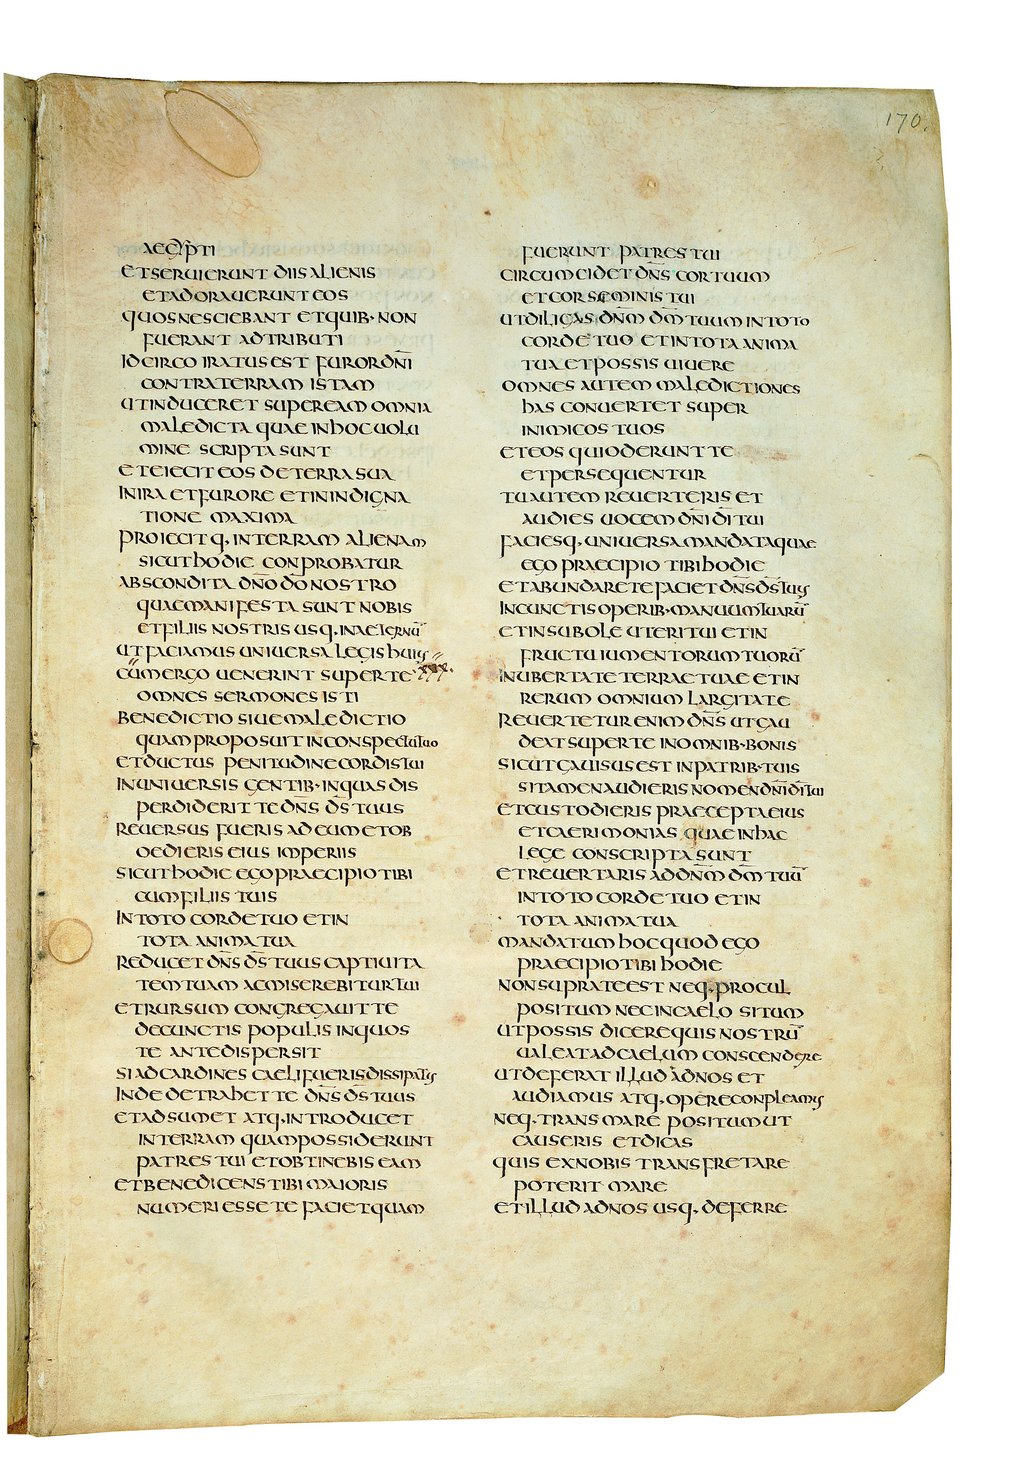 170.
AEGYPTI
ETSERUIERUNT DIIS ALIENIS
ETADORAUERUNT EOS
QUOS NESCIEBANT ET QUIB· NON
FUERANT ADTRIBUTI
IDCIRCO IRATUS EST FUROR DN̄I
CONTRA TERRAM ISTAM
UT INDUCERET SUPER EAM OMNIA
MALEDICTA QUAE IN HOC UOLU
MINE SCRIPTA SUNT
ET EIECIT EOS DE TERRA SUA
IN IRA ET FURORE ET IN INDIGNA
TIONE MAXIMA
PROIECITQ, IN TERRAM ALIENAM
SICUT HODIE CONPROBATUR
ABSCONDITA DN̄O DŌ NOSTRO
QUAE MANIFESTA SUNT NOBIS
ET FILIIS NOSTRIS USQ, IN AETERNŪ
UT FACIAMUS UNIUERSA LEGIS HUIUS
CUM ERGO UENERINT SUPER TE XXX.
OMNES SERMONES ISTI
BENEDICTIO SIUE MALEDICTIO
QUAM PROPOSUIT IN CONSPECTU TUO
ET DUCTUS PENITUDINE CORDIS TUI
IN UNIUERSIS GENTIB· IN QUAS DIS
PERDIDERIT TE DN̄S D̄S TUUS
REUERSUS FUERIS AD EUM ET OB
OEDIERIS EIUS IMPERIIS
SICUT HODIE EGO PRAECIPIO TIBI
CUM FILIIS TUIS
IN TOTO CORDE TUO ET IN
TOTA ANIMA TUA
REDUCET DN̄S D̄S TUUS CAPTIUITA
TEM TUAM AC MISEREBITUR TUI
ET RURSUM CONGREGAUIT TE
DE CUNCTIS POPULIS IN QUOS
TE ANTE DISPERSIT
SI AD CARDINES CAELI FUERIS DISSIPATUS
INDE DETRAHET TE DN̄S D̄S TUUS
ET ADSUMET ATQ, INTRODUCET
IN TERRAM QUAM POSSIDERUNT
PATRES TUI ET OBTINEBIS EAM
ET BENEDICENS TIBI MAIORIS
NUMERI ESSE TE FACIET QUAM
FUERUNT PATRES TUI
CIRCUMCIDET DN̄S COR TUUM
ET COR SEMINIS TUI
UT DILIGAS DN̄M D̄M TUUM IN TOTO
CORDE TUO ET IN TOTA ANIMA
TUA ET POSSIS UIUERE
OMNES AUTEM MALEDICTIONES
HAS CONUERTET SUPER
INIMICOS TUOS
ET EOS QUI ODERUNT TE
ET PERSEQUENTUR
TU AUTEM REUERTERIS ET
AUDIES UOCEM DN̄I D̄I TUI
FACIESQ, UNIUERSA MANDATA QUAE
EGO PRAECIPIO TIBI HODIE
ET ABUNDARE TE FACIET DN̄S D̄S TUUS
IN CUNCTIS OPERIB· MANUUM TUARŪ
ET IN SUBOLE UTERI TUI ET IN
FRUCTU IUMENTORUM TUORŪ
IN UBERTATE TERRAE TUAE ET IN
RERUM OMNIUM LARGITATE
REUERTETUR ENIM DN̄S UT GAU
DEAT SUPER TE IN OMNIB· BONIS
SICUT GAUISUS EST IN PATRIB· TUIS
SI TAMEN AUDIERIS NOMEN DN̄I D̄I TUI
ET CUSTODIERIS PRAECEPTA EIUS
ET CAERIMONIAS QUAE IN HAC
LEGE CONSCRIPTA SUNT
ET REUERTARIS AD DN̄M D̄M TUŪ
IN TOTO CORDE TUO ET IN
TOTA ANIMA TUA
MANDATUM HOC QUOD EGO
PRAECIPIO TIBI HODIE
NON SUPRA TE EST NEQ, PROCUL
POSITUM NEC IN CAELO SITUM
UT POSSIS DICERE QUIS NOSTRŪ
UALEAT AD CAELUM CONSCENDERE
UT DEFERAT ILLUD AD NOS ET
AUDIAMUS ATQ, OPERE CONPLEAMUS
NEQ, TRANS MARE POSITUM UT
CAUSERIS ET DICAS
QUIS EX NOBIS TRANSFRETARE
POTERIT MARE
ET ILLUD AD NOS USQ, DEFERRE